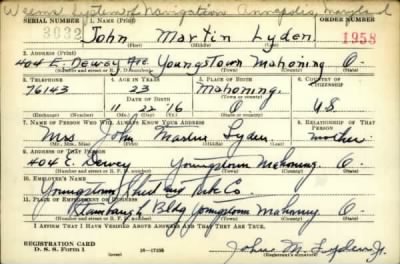 Weems System of Navigation Annapolis, Maryland
SERIAL NUMBER 1. NAME (Print) ORDER NUMBER
3032 John Martin Lyden 1958
(First) (Middle) (Last)
2. ADDRESS (Print)
404 E. Dewey Ave. Youngstown Mahoning O.
(Number and street or R. F. D. number) (Town) (County) (State)
3. TELEPHONE 4. AGE IN YEARS 5. PLACE OF BIRTH 6. COUNTRY OF CITIZENSHIP
76143 23 Mahoning
DATE OF BIRTH (Town or county)
11 22 16 O U.S.
(Mo.) (Day) (Yr.) (State or country)
7. NAME OF PERSON WHO WILL ALWAYS KNOW YOUR ADDRESS 8. RELATIONSHIP OF THAT PERSON
Mrs John Martin Lyden mother
(Mr., Mrs., Miss) (First) (Middle) (Last)
9. ADDRESS OF THAT PERSON
404 E. Dewey Youngstown Mahoning O.
(Number and street or R. F. D. number) (Town) (County) (State)
10. EMPLOYER'S NAME
Youngstown Sheet and Tube Co
11. PLACE OF EMPLOYMENT OR BUSINESS
Stambaugh Bldg Youngstown Mahoning O.
(Number and street or R. F. D. number) (Town) (County) (State)
I AFFIRM THAT I HAVE VERIFIED ABOVE ANSWERS AND THAT THEY ARE TRUE.
REGISTRATION CARD
D. S. S. Form 1 16—17105 John M. Lyden Jr.
(Registrant's signature)